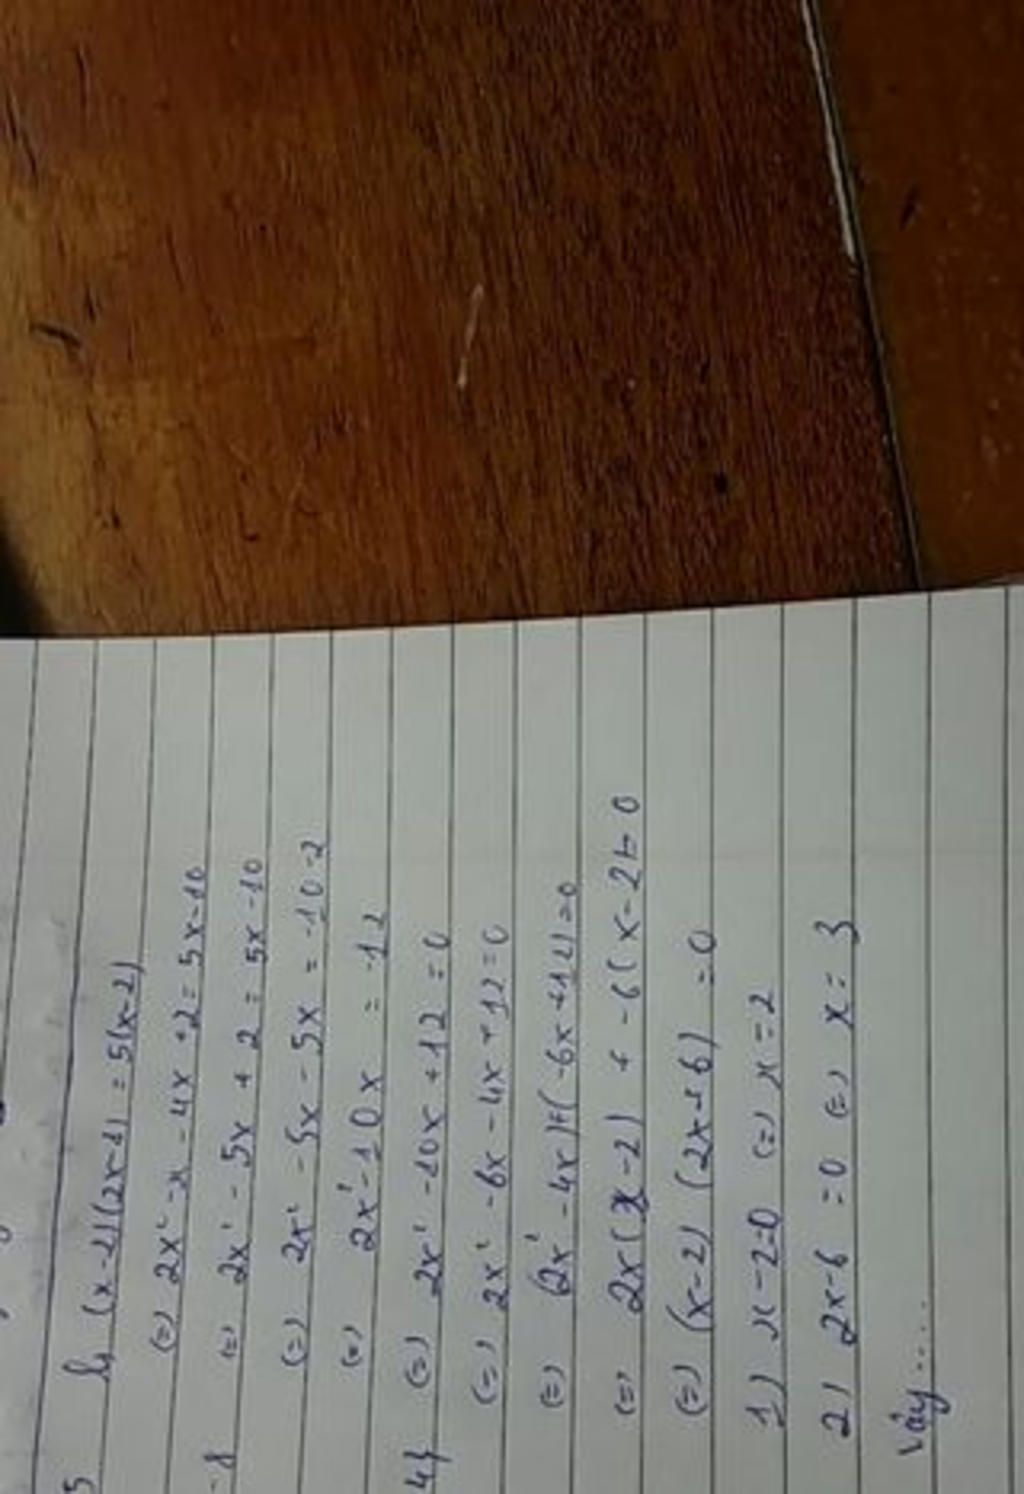 b, (x-2)(2x-1) = 5(x-2)
(=) 2x² -x - 4x +2 = 5x-10
(=) 2x² - 5x + 2 = 5x -10
(=) 2x² - 5x - 5x = -10-2
(=) 2x² -10x = -12
(=) 2x² -10x +12 =0
(=) 2x² -6x -4x +12=0
(=) (2x² -4x)+(-6x+12)=0
(=) 2x(x-2) + -6(x-2)=0
(=) (x-2) (2x+6) =0
1) x-2=0 (=) x=2
2) 2x-6 =0 (=) x=3
Vậy....